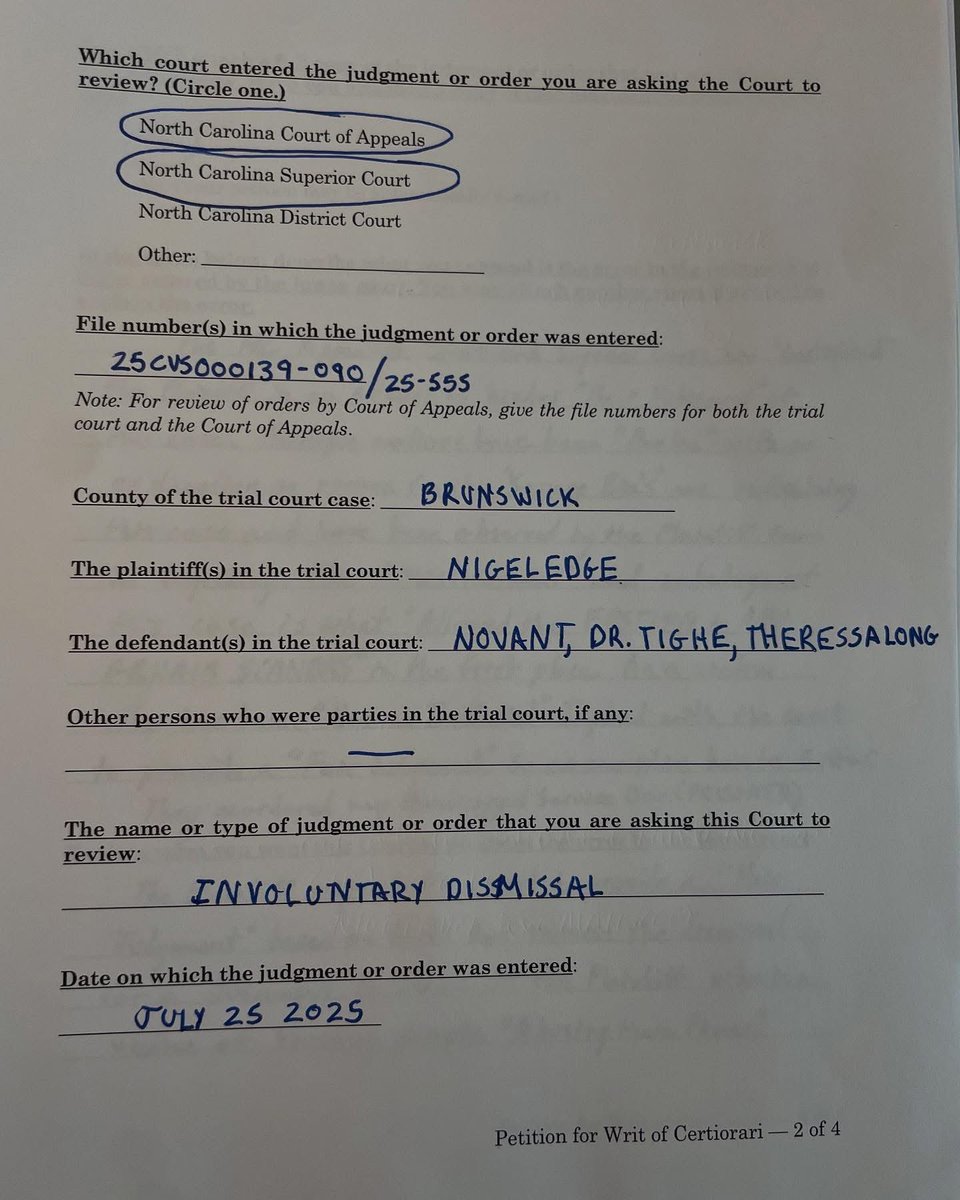 Which court entered the judgment or order you are asking the Court to
review? (Circle one.)
North Carolina Court of Appeals
North Carolina Superior Court
North Carolina District Court
Other:
File number(s) in which the judgment or order was entered:
25CVS000139-090/25-555
Note: For review of orders by Court of Appeals, give the file numbers for both the trial
court and the Court of Appeals.
County of the trial court case: BRUNSWICK
The plaintiff(s) in the trial court: NIGEL EDGE
The defendant(s) in the trial court: NOVANT, DR. TIGHE, THERESSA LONG
Other persons who were parties in the trial court, if any:
—
The name or type of judgment or order that you are asking this Court to
review:
INVOLUNTARY DISMISSAL
Date on which the judgment or order was entered:
JULY 25 2025
Petition for Writ of Certiorari — 2 of 4